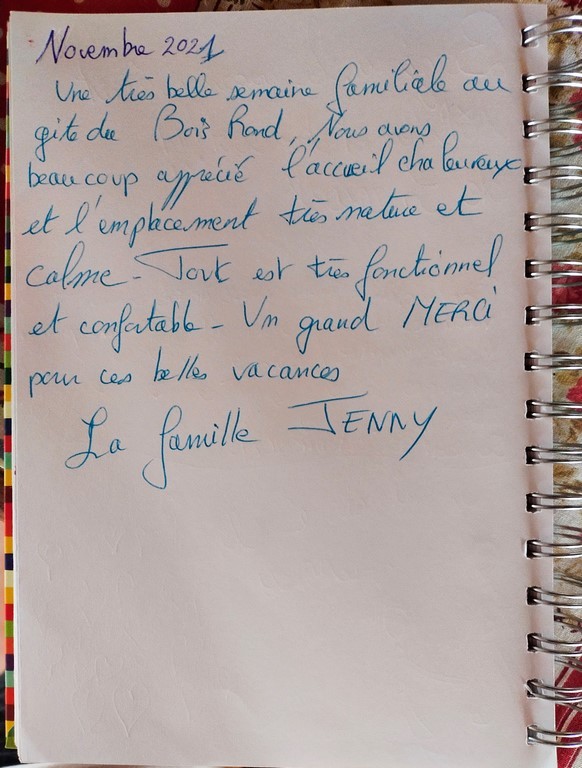 Novembre 2021
Une très belle semaine familiale au
gite du Bois Rond, Nous avons
beaucoup apprécié l'accueil chaleureux
et l'emplacement très nature et
calme - Tout est très fonctionnel
et confortable - Un grand MERCI
pour ces belles vacances
La famille JENNY